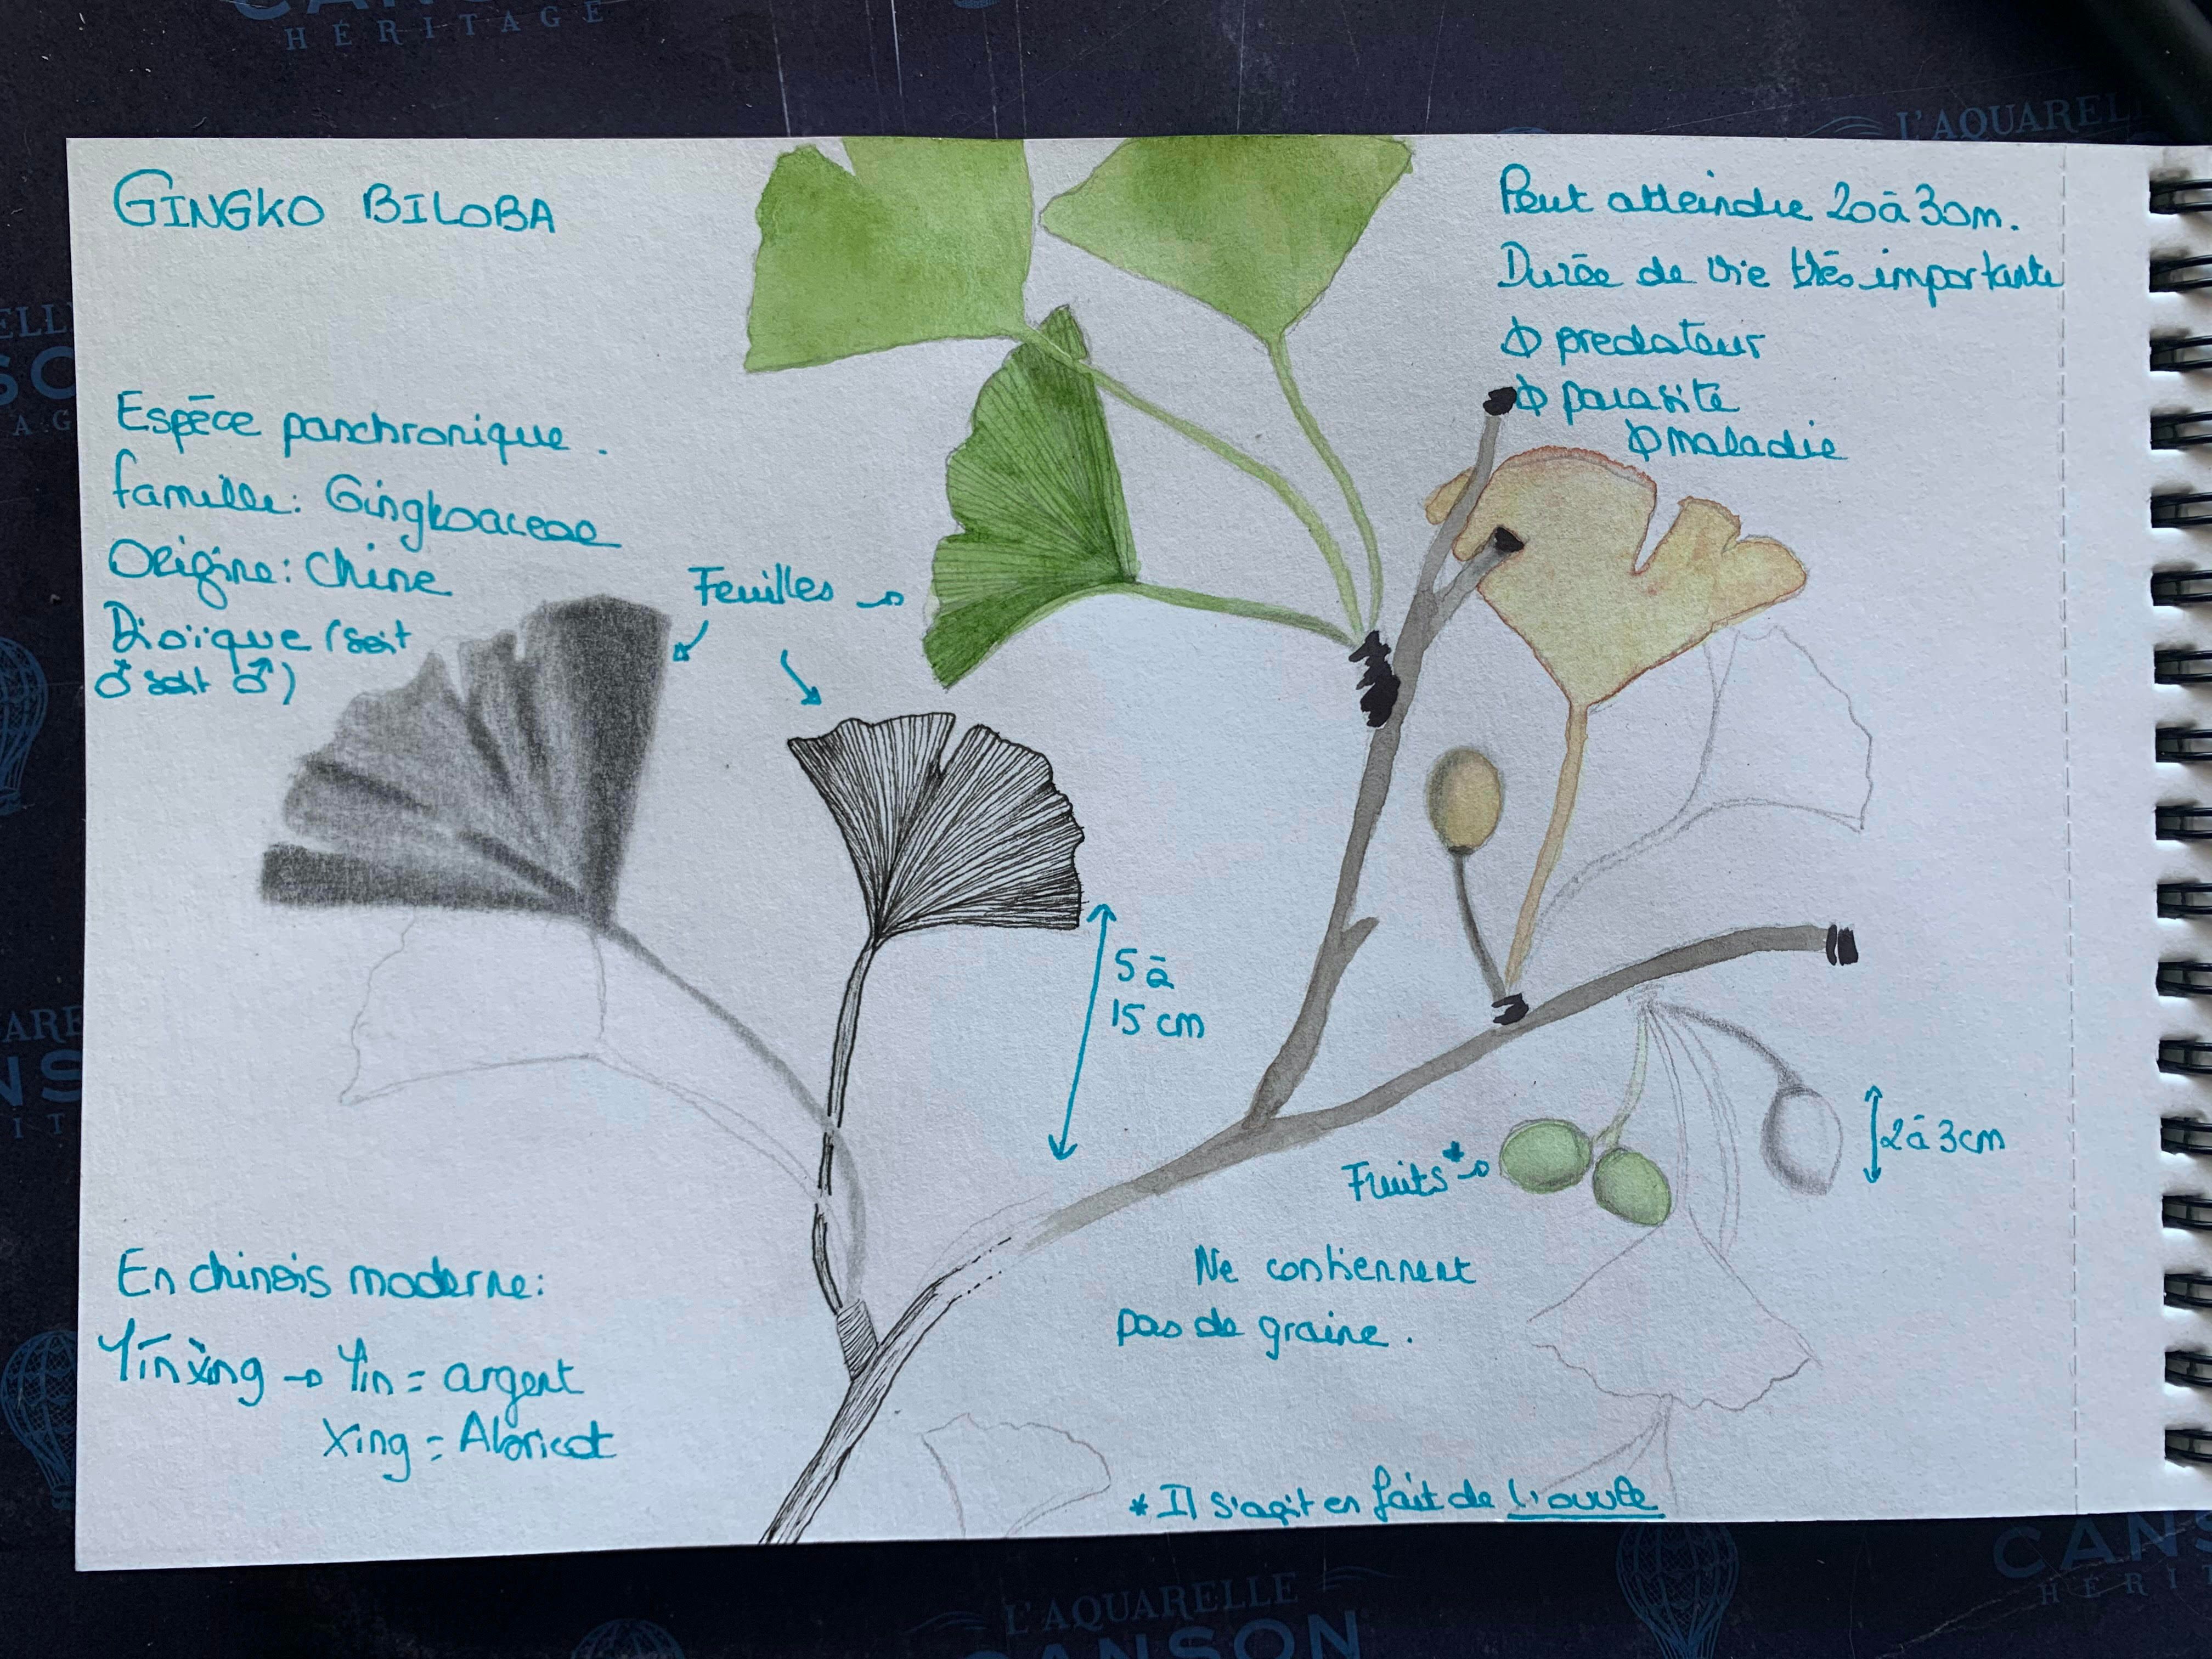 CANSON
HÉRITAGE
L'AQUARELLE
GINGKO BILOBA
Espèce panchronique.
famille: Gingkoaceae
Origine: Chine
Dioïque (soit
♂ soit ♂)
Feuilles →
5 à
15 cm
Peut atteindre 20 à 30m.
Durée de vie très importante
Ø predateur
Ø parasite
Ø maladie
Fruits* →
2 à 3cm
Ne contiennent
pas de graine.
En chinois moderne:
Yínxìng → Yin = argent
Xing = Abricot
* Il s'agit en fait de l'ovule
L'AQUARELLE
CANSON
CANSON
HÉRI